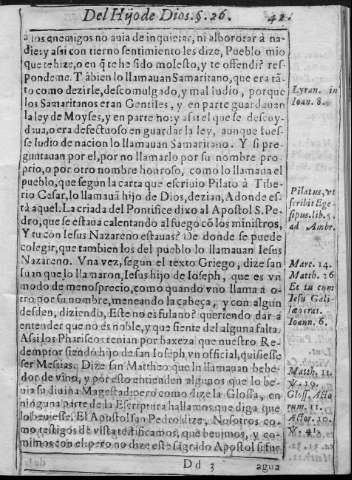 Del Hijo de Dios. §. 26. 42.
a los enemigos no auia de inquietar, ni alborotar a na-
die: y assi con tierno sentimiento les dize, Pueblo mio
que te hize, o en q̃ te he sido molesto, y te offendi? res-
pondeme. Tãbien lo llamauan Samaritano, que era tã-
to como dezirle, descomulgado, y mal ludio, porque
los Samaritanos eran Gentiles, y en parte guardauan
la ley de Moyses, y en parte no: y assi el que se descuy-
daua, o era defectuoso en guardar la ley, aunque fues-
se ludio de nacion lo llamauan Samaritano. Y si pre-
guntauan por el, por no llamarlo por su nombre pro-
prio, o por otro nombre honroso, como lo llamaua el
pueblo, que segun la carta que escriuio Pilato à Tibe-
rio Cesar, lo llamauã hijo de Dios, dezian, Adonde es-
tà aquel. La criada del Pontifice dixo al Apostol S. Pe-
dro, que se estaua calentando al fuego cõ los ministros,
Y tu con Iesus Nazareno estauas? De donde se puede
colegir, que tambien los del pueblo lo llamauan Iesus
Nazareno. Vna vez, segun el texto Griego, dize san
Iuan que lo llamaron, Iesus hijo de Ioseph, que es vn
modo de menosprecio, como quando vno llama a o-
tro por su nombre, meneando la cabeça, y con algun
desden, diziendo, Este no es fulano? queriendo dar a
entender que no es noble, y que siente del alguna falta.
Assi los Phariseos tenian por baxeza que nuestro Re-
demptor siendo hijo de san Ioseph vn official, quisiesse
ser Mesias. Dize san Mattheo que lo llamauan bebe-
dor de vino, y por esto entienden algunos que lo be-
uia su diuina Magestad: pero como dize la Glossa, en
ninguna parte de la Escriptura hallamos que diga que
lo beuiesse. El Apostol san Pedro dize, Nosotros co-
mo testigos de vista testificamos, que beuimos, y co-
mimos con el: pero no dize este sagrado Apostol si fue
Dd 3 agua
Lyran. in
Ioan. 8.
Pilatus, vt
scribit Ege-
sipus. lib. 5.
ad Ambr.
Marc. 14.
Matth. 26
Et tu cum
Iesu Gali-
læo eras.
Ioann. 6.
Matth. 11.
℣. 19.
Gloss. Acto
rum. 11.
Actor. 10.